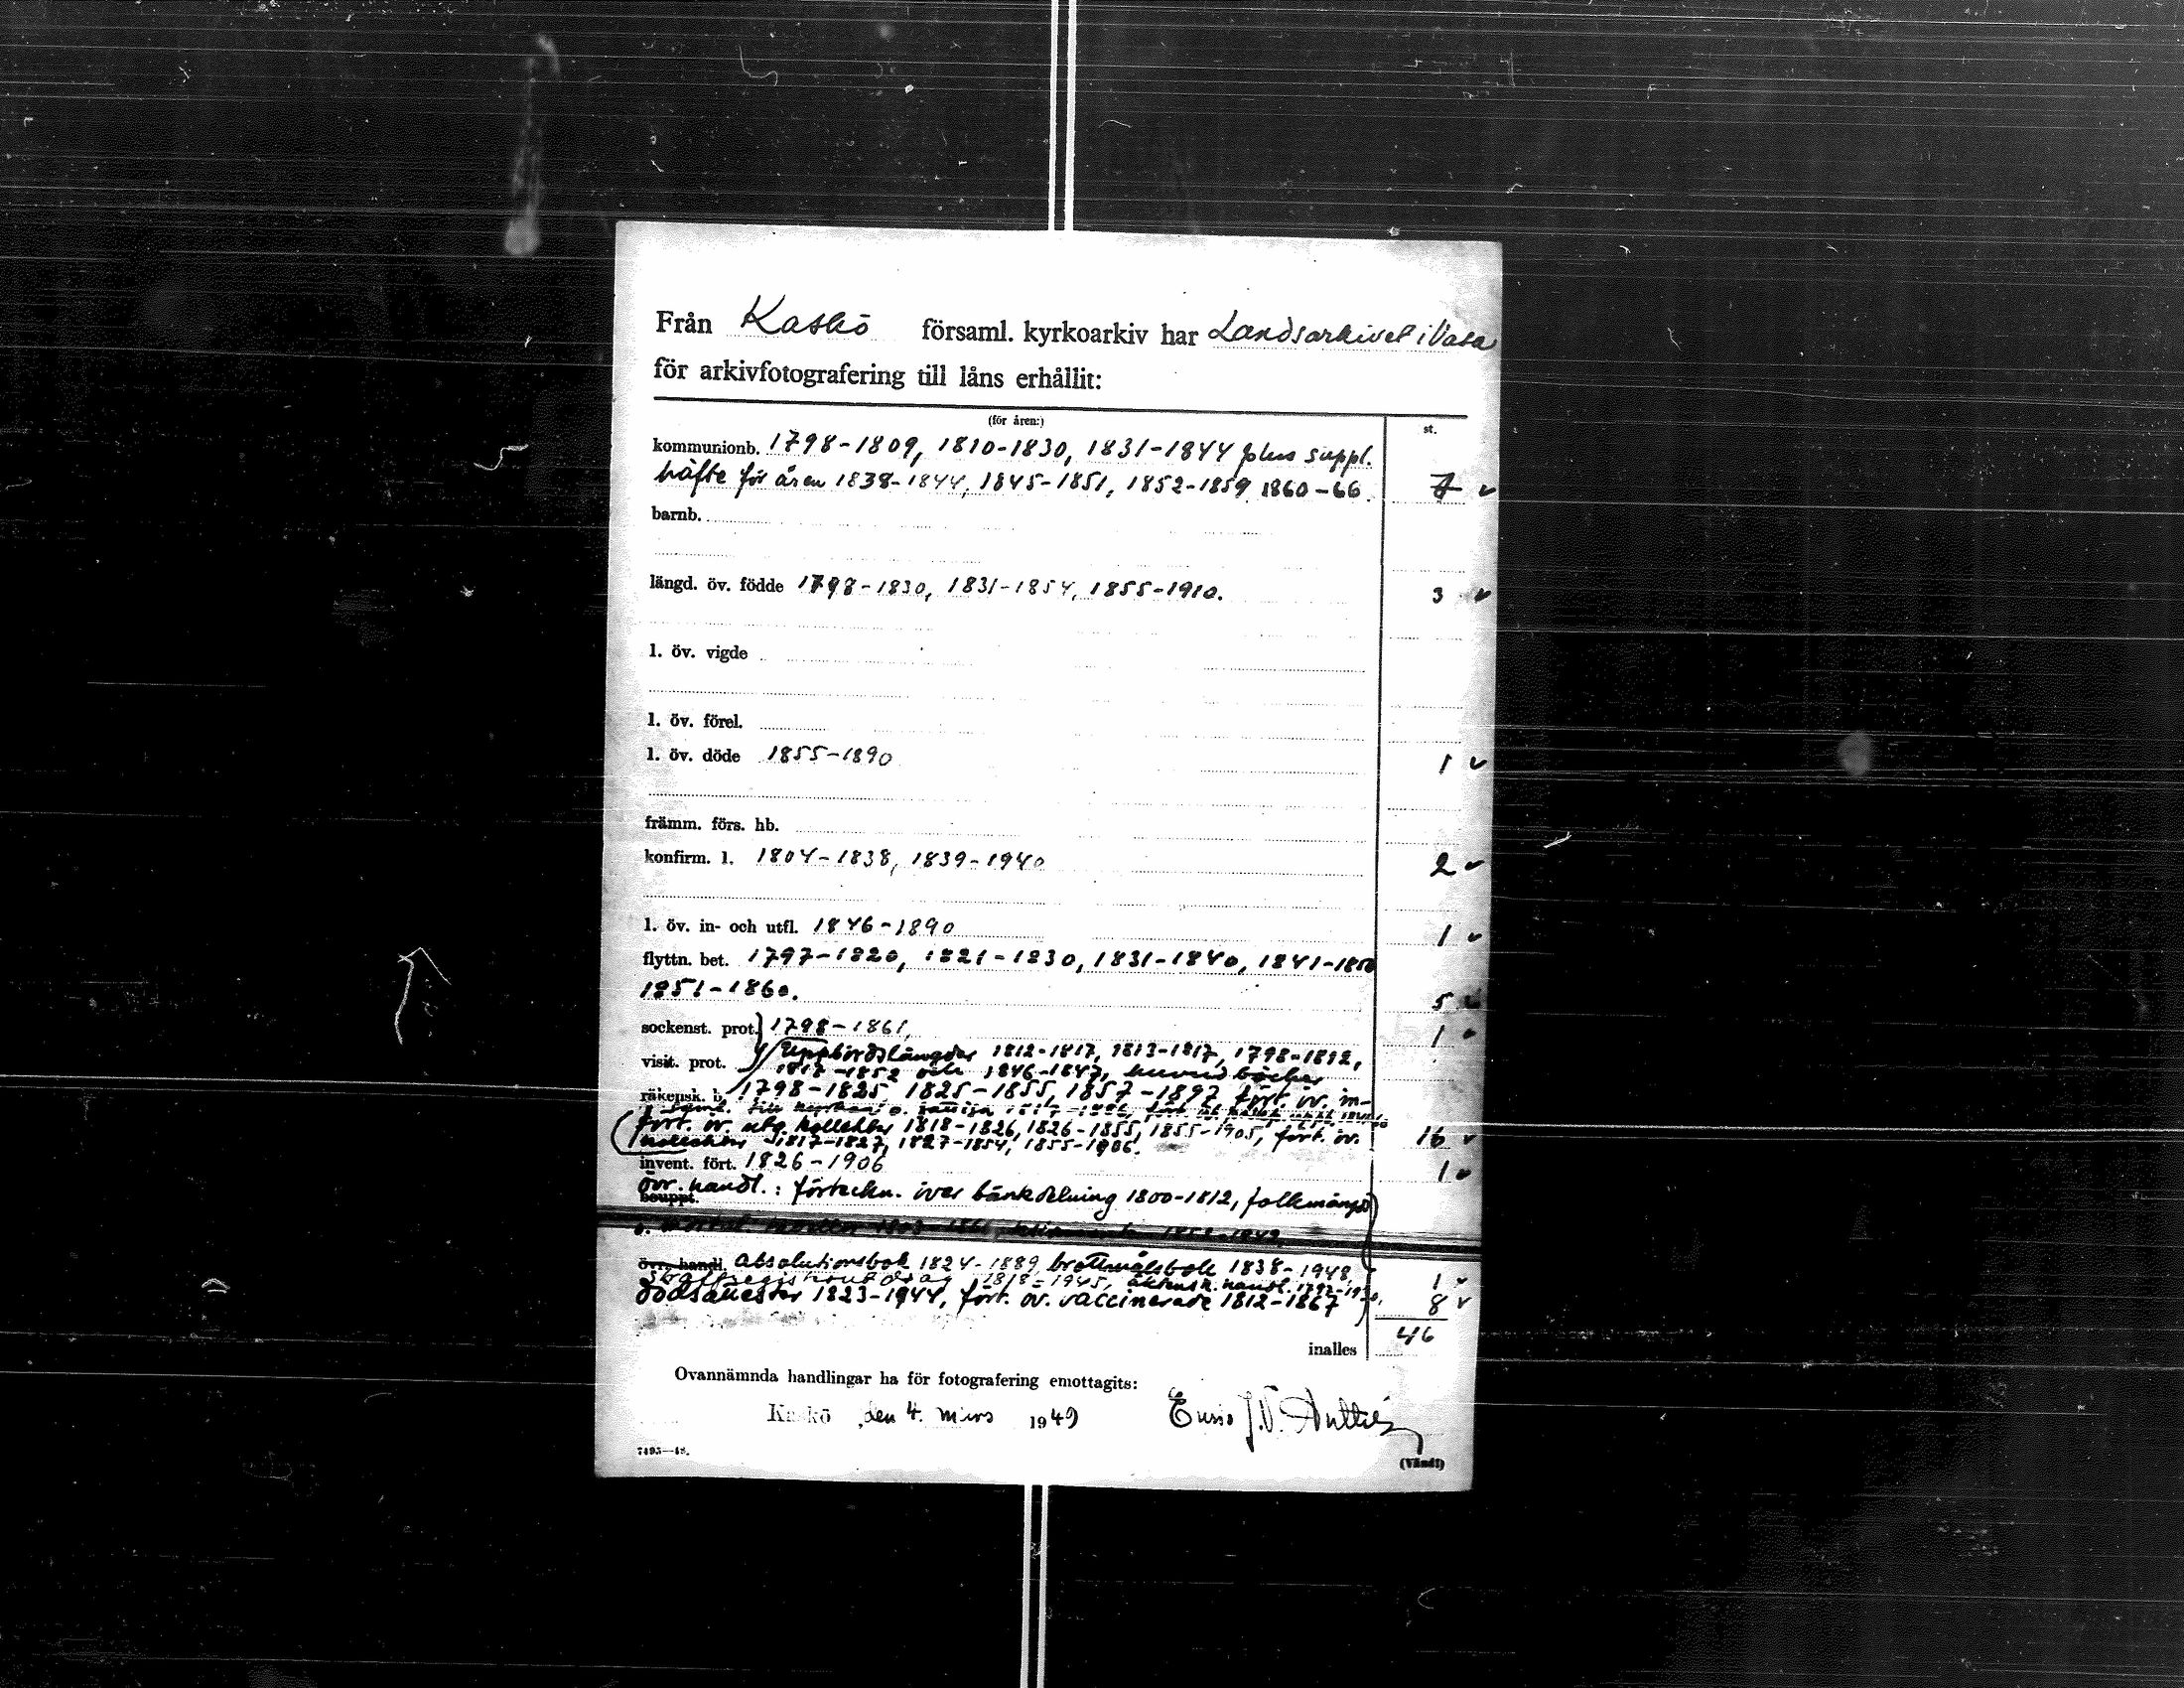 Från Kaskö församl. kyrkoarkiv har Landsarkivet i Vasa
för arkivfotografering till låns erhållit:
(för åren:) st.
kommunionb. 1798-1809, 1810-1830, 1831-1844 plus suppl.
häfte för åren 1838-1844, 1845-1851, 1852-1859, 1860-66. 7
barnb.
längd. öv. födde 1798-1830, 1831-1854, 1855-1910. 3
l. öv. vigde
l. öv. förel.
l. öv. döde 1855-1890 1
främm. förs. hb.
konfirm. l. 1804-1838, 1839-1940 2
l. öv. in- och utfl. 1846-1890 1
flyttn. bet. 1797-1820, 1821-1830, 1831-1840, 1841-1850
1851-1860. 5
sockenst. prot. 1798-1861, 1
visit. prot. Uppbördslängder 1812-1817, 1813-1817, 1798-1812,
1817-1852 och 1846-1847, huvudböcker
räkensk. b. 1798-1825, 1825-1855, 1857-1897, fört. öv. in-
saml. till kyrkan o.
fört. öv. utg. kollekter 1818-1826, 1826-1855, 1855-1905, fört. öv. 16
kollekter 1817-1827, 1827-1854, 1855-1906.
invent. fört. 1826-1906 1
övr. handl.: förteckn. över bänkdelning 1800-1812, folkmängd
bouppt.
övr. handl. absolutionsbok 1824-1889, brottmålsbok 1838-1948, 1
straffregisterutdrag 1818-1945, äktensk. handl. 1792-1930,
dödsattester 1823-1944, fört. öv. vaccinerade 1812-1867 8
46
inalles
Ovannämnda handlingar ha för fotografering emottagits:
Kaskö, den 4. mars 1949
7495—48.
(Vänd!)